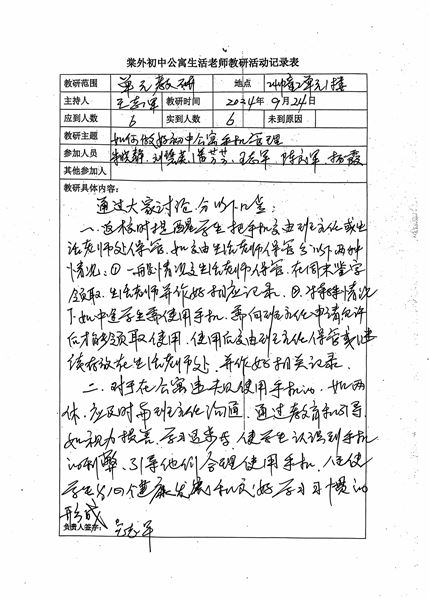 棠外初中公寓生活老师教研活动记录表
教研范围 单元教研 地点 2单元1楼
主持人 王志军 教研时间 2024年9月24日
应到人数 6 实到人数 6 未到原因
教研主题 如何做好初中公寓手机管理
参加人员 王志军
其他参加人
教研具体内容：
通过大家讨论分以下几点：
一、返校时提醒学生把手机交由班主任或生
活老师处保管。如交由生活老师保管分以下两种
情况：①一般情况交生活老师保管，在周末鉴字
领取，生活老师并作好相应记录。②特殊情况
下如中途学生需使用手机，需向班主任申请允许
后才能领取使用，使用后交由班主任保管或继
续存放在生活老师处，并作好相关记录。
二、对于在公寓违规使用手机的，如两
休，应及时与班主任沟通，通过教育和引导，
如视力损害、学习退步等，使学生认识到手机
的利弊、引导他们合理使用手机，促使
学生的健康发展和良好学习习惯的
形成
负责人签字：王志军